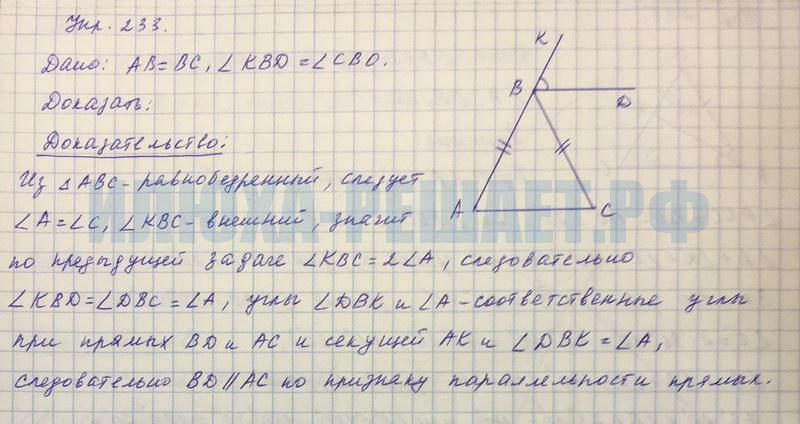 Упр. 233.
Дано: AB=BC, ∠KBD=∠CBD.
Доказать:
Доказательство:
Из △ABC - равнобедренный, следует
∠A=∠C, ∠KBC - внешний, значит
по предыдущей задаче ∠KBC=2∠A, следовательно
∠KBD=∠DBC=∠A, углы ∠DBK и ∠A - соответственные углы
при прямых BD и AC и секущей AK и ∠DBK=∠A,
следовательно BD∥AC по признаку параллельности прямых.
K
B
D
A
C
ИЛЮХА-РЕШАЕТ.РФ